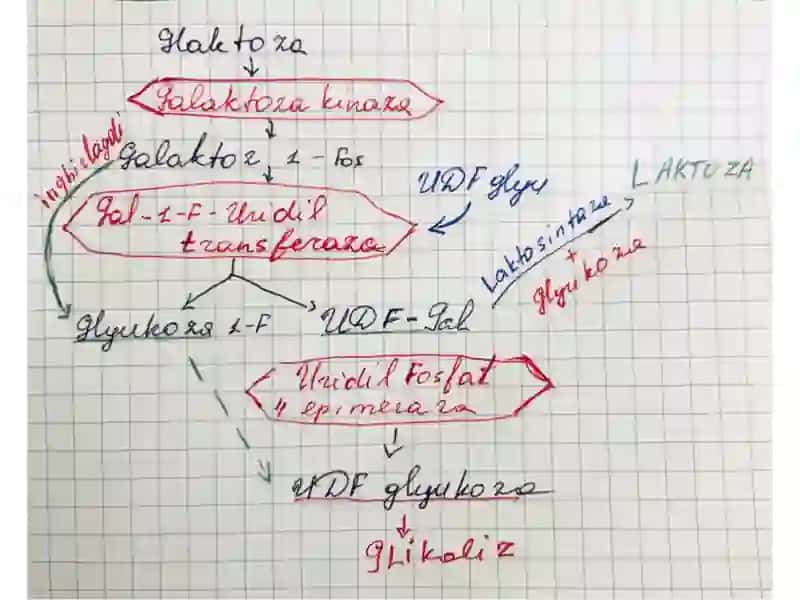 Galaktoza
Galaktoza kinaza
Galaktoz 1-Fos
UDF glyu
LAKTOZA
Gal-1-F-Uridil
transferaza
Laktosintaza
+
glyukoza
Glyukoza 1-F
UDF-Gal
Uridil Fosfat
4 epimeraza
UDF glyukoza
GLikoliz